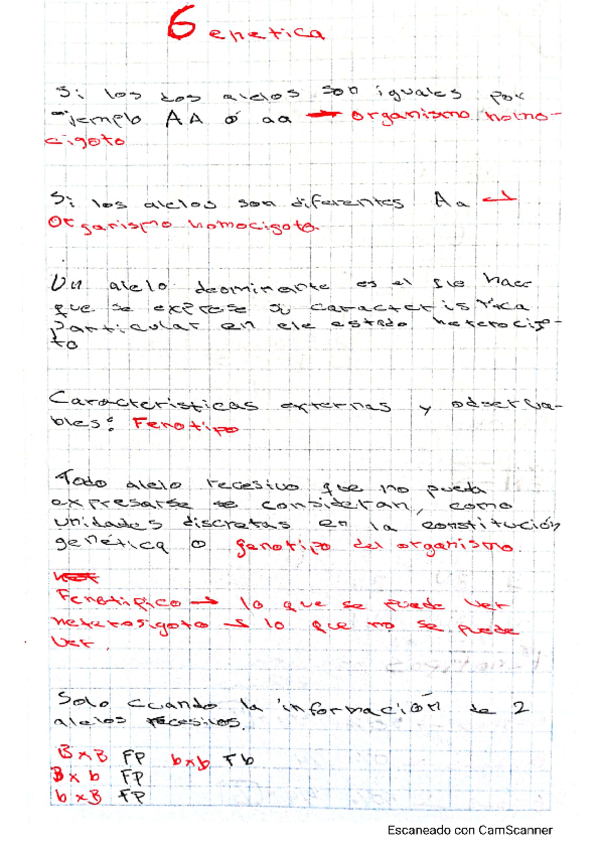 Genetica
Si los dos alelos son iguales por
ejemplo AA ó aa → organismo homo-
cigoto
Si los alelos son diferentes Aa →
Organismo homocigoto.
Un alelo deominante es el que hace
que se exprese su caracteristica
particular en ele estado heterocigo-
to
Caracteristicas externas y observa-
bles: Fenotipo
Todo alelo recesivo que no pueda
expresarse se consideran, como
unidades discretas en la constitución
genética o genotipo del organismo.
Fenotipico → lo que se puede ver
heterosigoto → lo que no se puede
ver.
Solo cuando la información de 2
alelos recesivos.
B x B FP b x b Fb
B x b FP
b x B FP
Escaneado con CamScanner